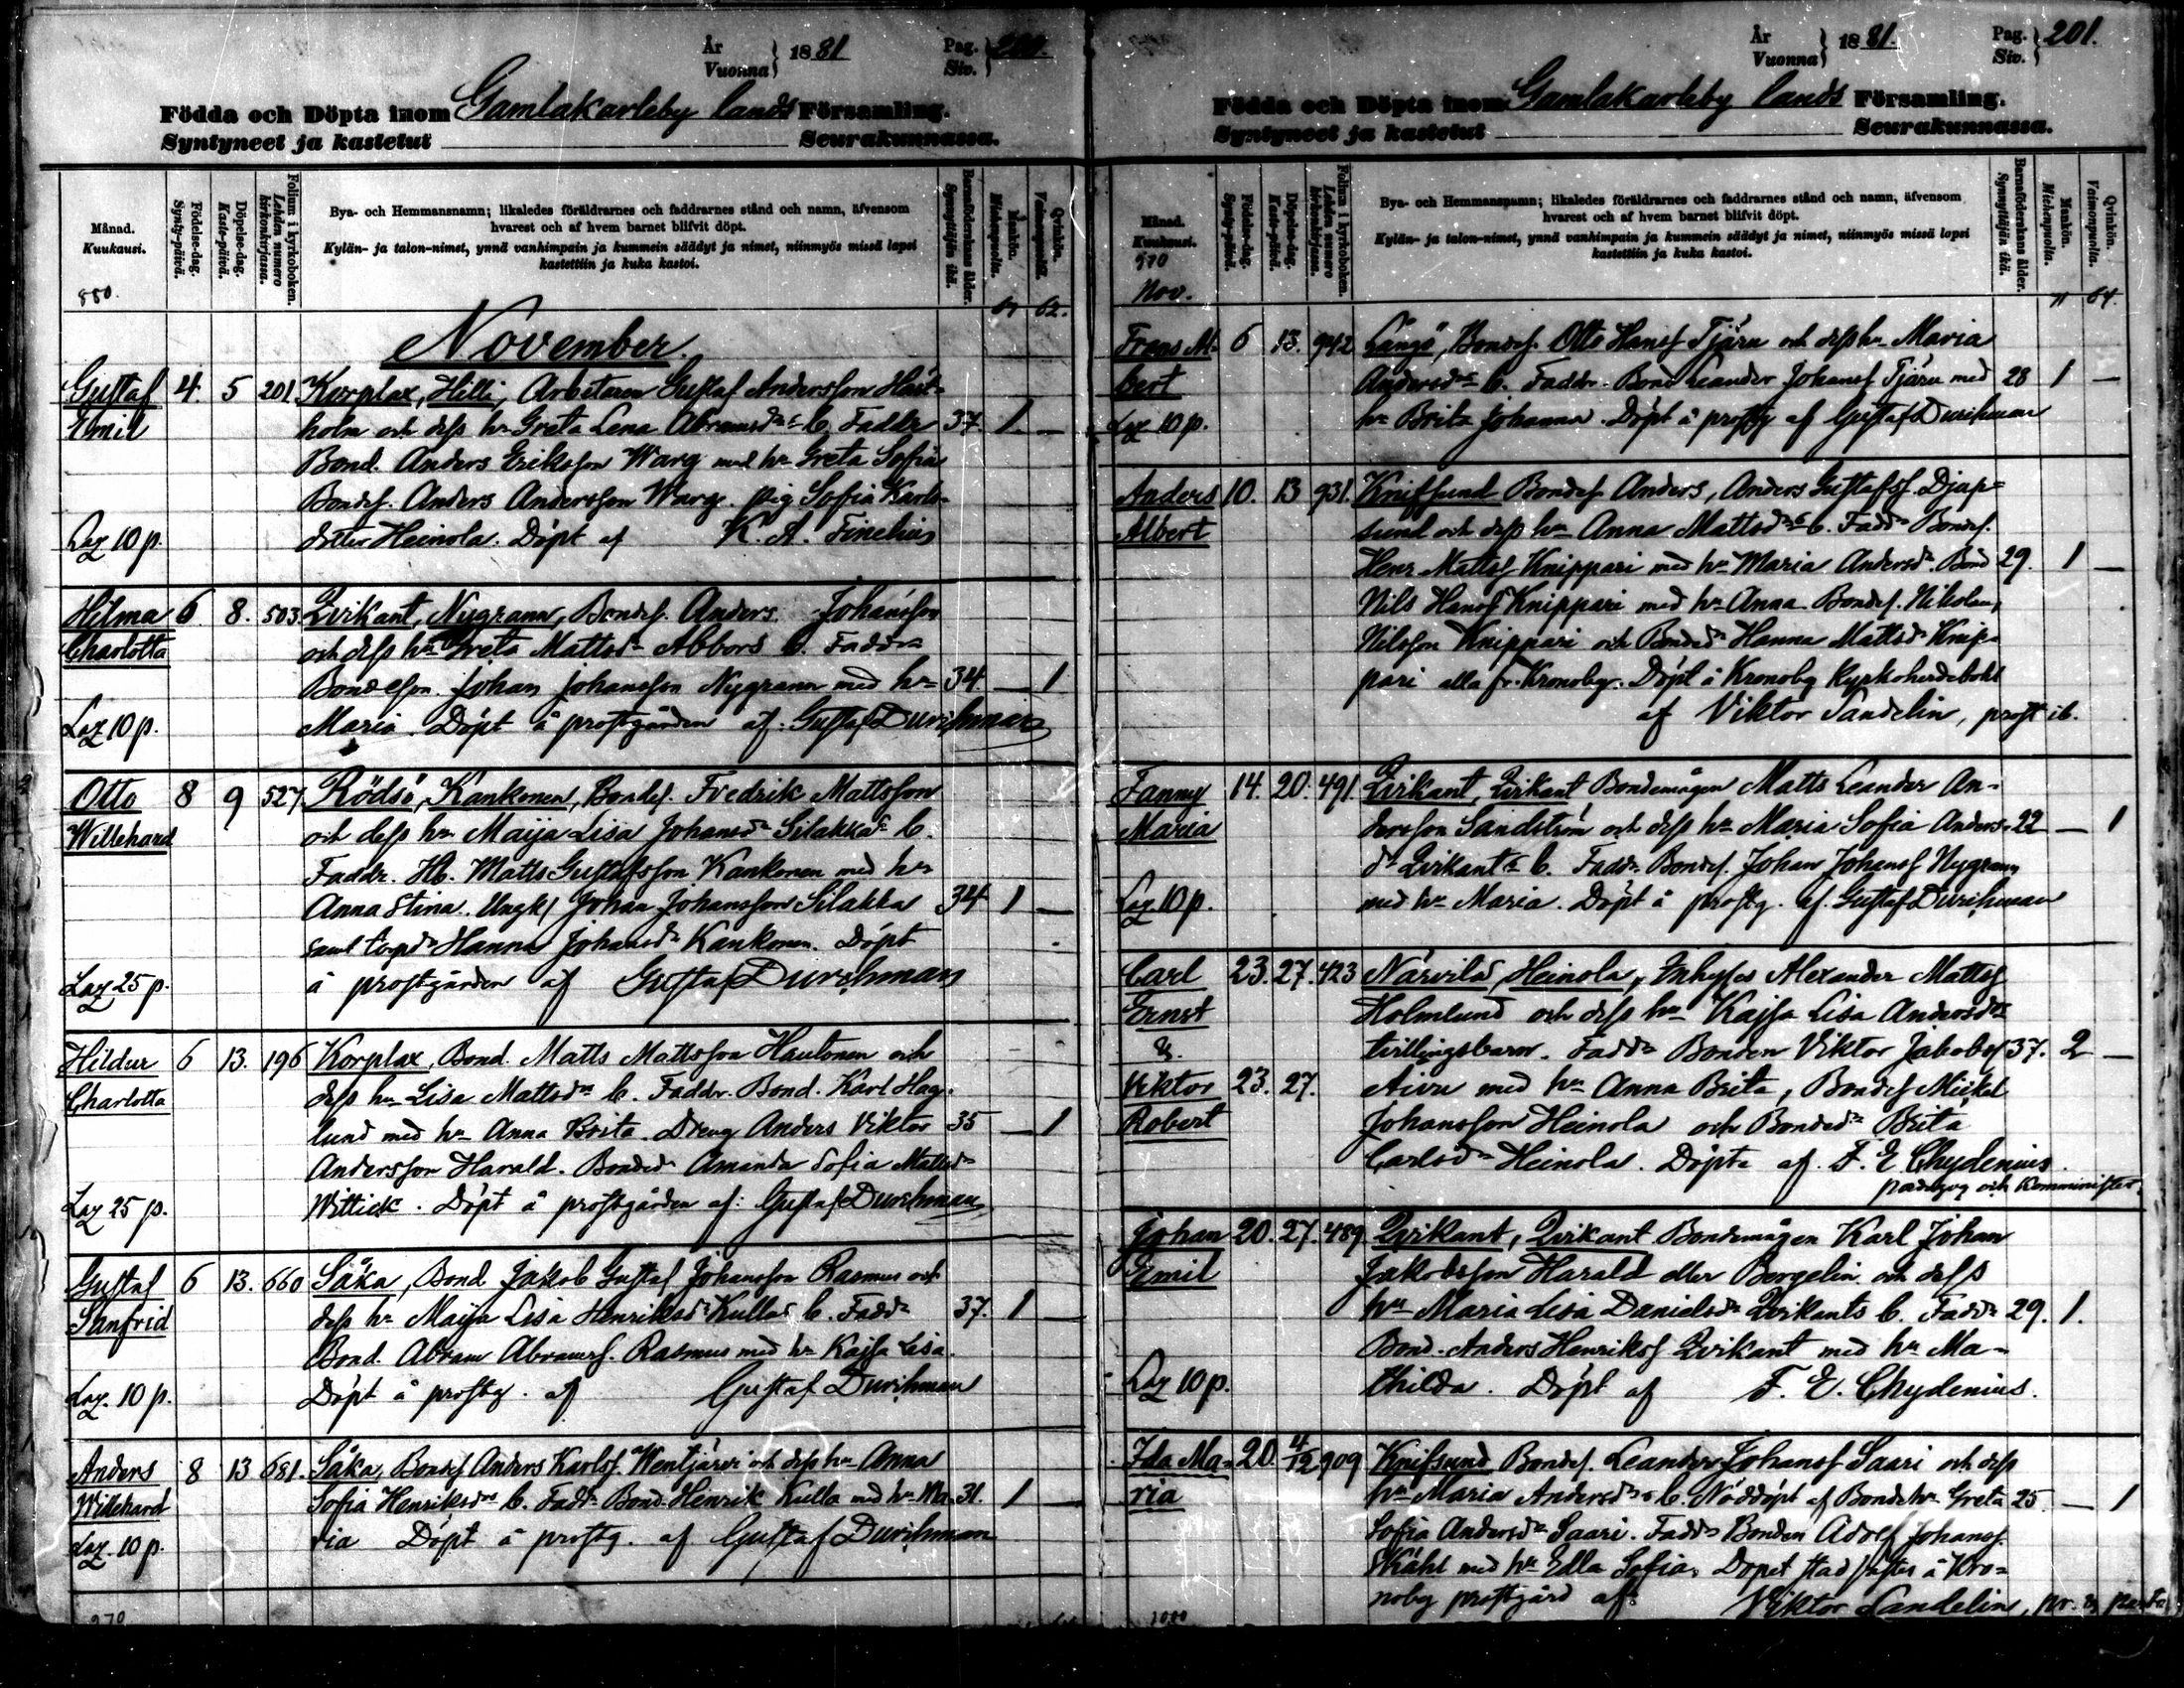 År
Vuonna } 1881
Pag.
Siv. } 200.
Födda och Döpta inom Gamlakarleby lands Församling.
Syntyneet ja kastetut Seurakunnassa.
Månad.
Kuukausi.
Födelse-dag.
Synty-päivä.
Döpelse-dag.
Kaste-päivä.
Folium i kyrkoboken.
Lehden numero kirkonkirjassa.
Bya- och Hemmansnamn; likaledes föräldrarnes och faddrarnes stånd och namn, äfvensom
hvarest och af hvem barnet blifvit döpt.
Kylän- ja talon-nimet, ynnä vanhimpain ja kummein säädyt ja nimet, niinmyös missä lapsi
kastettiin ja kuka kastoi.
Barnaföderskans ålder.
Synnyttäjän ikä.
Mankön.
Miehenpuolia.
Qvinkön.
Vaimonpuolia.
880.
62.
November.
Gustaf 4. 5 201. Korplax, Hilli, Arbetaren Gustaf Andersson Hast-
Emil holm och dess hu Greta Lena Abramsdr s. b. Faddr 37. 1 —
Bond. Anders Eriksson Warg med hu Greta Sofia
Bondes. Anders Andersson Warg. Pig Sofia Karls-
Lax 10 p. dotter Heinola. Döpt af K. A. Finelius
Hilma 6 8. 503. Qvikant, Nygrann, Bondes. Anders Johansson
Charlotta och dess hu Greta Mattsdr Abbors b. Faddr
Bondeson. Johan Johansson Nygrann med hu 34. — 1
Lax 10 p. Maria. Döpt å prostgården af Gustaf Durchman
Otto 8 9 527 Rödsö, Kankonen, Bondes. Fredrik Mattsson
Willehard och dess hu Maija Lisa Johansdr Silakkas b.
Faddr. Hb. Matts Gustafsson Kankonen med hu
Anna Stina. Ungk. Johan Johansson Silakka 34 1 —
samt torpdr Hanna Johansdr Kankonen. Döpt
Lax 25 p. å prostgården af Gustaf Durchman
Hildur 6 13. 196 Korplax, Bond. Matts Mattsson Hautonen och
Charlotta dess hu Lisa Mattsdr b. Faddr. Bond. Karl Hag-
lund med hu Anna Brita. Dreng Anders Viktor 35 — 1
Andersson Harald. Bondedr Amanda Sofia Mattsdr
Lax 25 p. Wittick. Döpt å prostgården af: Gustaf Durchman
Gustaf 6 13. 660 Såka, Bond Jakob Gustaf Johansson Rasmus och
Sanfrid dess hu Maija Lisa Henriksdr Kullas b. Faddr 37. 1 —
Bond. Abram Abramss. Rasmus med hu Kajsa Lisa.
Lax. 10 p. Döpt å prostg. af Gustaf Durchman
Anders 8 13 681. Såka, Bondes Anders Karlss. Wentjärvi och dess hu Anna
Willehard Sofia Henriksdr b. Faddr Bond. Henrik Kulla med hu Ma- 31. 1 —
Lax. 10 p. ria Döpt å prostg. af Gustaf Durchman
970
År
Vuonna } 1881.
Pag.
Siv. } 201.
Födda och Döpta inom Gamlakarleby lands Församling.
Syntyneet ja kastetut Seurakunnassa.
Månad.
Kuukausi.
Födelse-dag.
Synty-päivä.
Döpelse-dag.
Kaste-päivä.
Folium i kyrkoboken.
Lehden numero kirkonkirjassa.
Bya- och Hemmansnamn; likaledes föräldrarnes och faddrarnes stånd och namn, äfvensom
hvarest och af hvem barnet blifvit döpt.
Kylän- ja talon-nimet, ynnä vanhimpain ja kummein säädyt ja nimet, niinmyös missä lapsi
kastettiin ja kuka kastoi.
Barnaföderskans ålder.
Synnyttäjän ikä.
Mankön.
Miehenpuolia.
Qvinkön.
Vaimonpuolia.
970
Nov. 71 64.
Frans Al- 6 13. 942 Långö, Bondes. Otto Hanss Tjäru och dess hu Maria
bert Andersdr s. b. Faddr. Bond Leander Johanss Tjäru med 28 1 —
Lax 10 p. hu Brita Johanna. Döpt å prostg af Gustaf Durchman
Anders 10. 13 931. Knifsund Bondes Anders, Anders Gustafss. Djap-
Albert sund och dess hu Anna Mattsdr s. b. Faddr Bondes.
Henr. Mattss Knippari med hu Maria Andersdr. Bond 29. 1 —
Nils Hanss Knippari med hu Anna. Bondes. Nikolaus
Nilsson Knippari och Bondedr Hanna Mattsdr Knip-
pari alla fr. Kronoby. Döpt å Kronoby Kyrkoherdebohl
af Viktor Sandelin, prost ib.
Fanny 14. 20. 491. Qvikant, Qvikant Bondemågen Matts Leander An-
Maria dersson Sandström och dess hu Maria Sofia Anders- 22 — 1
dr Qvikants b. Faddr. Bondes. Johan Johanss Nygrann
Lax 10 p. med hu Maria. Döpt å prostg. af Gustaf Durchman
Carl 23. 27. 423 Närvilä, Heinola, Inhyses Alexander Mattss
Ernst Holmlund och dess hu Kajsa Lisa Andersdrs
&. tvillingsbarn. Faddr Bonden Viktor Jakobss 37. 2 —
Viktor 23. 27. Aivu med hu Anna Brita, Bondes Mickel
Robert Johansson Heinola och Bondedr Brita
Carlsdr Heinola. Döpte af F. E Chydenius.
pædagog och Kommunister.
Johan 20. 27. 489. Qvikant, Qvikant Bondemågen Karl Johan
Emil Jakobsson Harald eller Bergelin och dess
hu Maria Lisa Danielsdr Qvikants b. Faddr 29. 1.
Bond. Anders Henrikss Qvikant med hu Ma-
Lax 10 p. thilda. Döpt af F. E. Chydenius.
Ida Ma- 20. 4/12 909 Knifsund Bondes. Leander Johanss Saari och dess
ria hu Maria Andersdr s. b. Nöddöpt af Bondehu Greta 25 — 1
Sofia Andersdr Saari. Faddr Bonden Adolf Johanss.
med hu Edla Sofia. Dopet stadfästes å Kro-
noby prostgård af: Viktor Sandelin,
1000